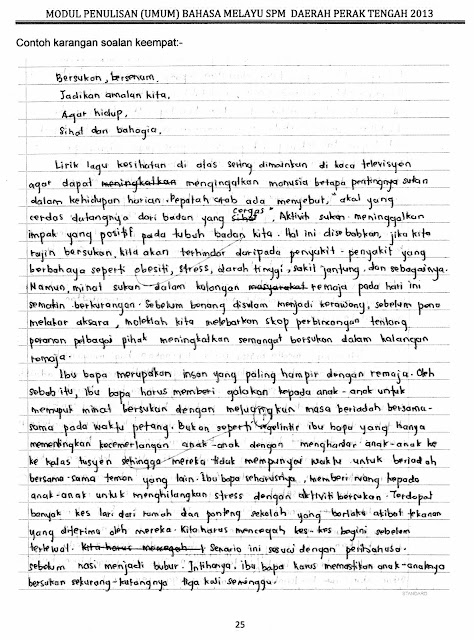 MODUL PENULISAN (UMUM) BAHASA MELAYU SPM DAERAH PERAK TENGAH 2013
Contoh karangan soalan keempat:-
Bersukan, bersenam.
Jadikan amalan kita.
Agar hidup.
Sihat dan bahagia.
Lirik lagu kesihatan di atas sering dimainkan di kaca televisyen
agar dapat meningkatkan mengingatkan manusia betapa pentingnya sukan
dalam kehidupan harian. Pepatah arab ada menyebut, "akal yang
cerdas datangnya dari badan yang sihat cergas". Aktiviti sukan meninggalkan
impak yang positif pada tubuh badan kita. Hal ini disebabkan, jika kita
rajin bersukan, kita akan terhindar daripada penyakit-penyakit yang
berbahaya seperti obesiti, stress, darah tinggi, sakit jantung, dan sebagainya.
Namun, minat sukan dalam kalangan masyarakat remaja pada hari ini
semakin berkurangan. Sebelum benang disulam menjadi kerawang, sebelum pena
melakar aksara, moleklah kita melebarkan skop perbincangan tentang
peranan pelbagai pihak meningkatkan semangat bersukan dalam kalangan
remaja.
Ibu bapa merupakan insan yang paling hampir dengan remaja. Oleh
sebab itu, ibu bapa harus memberi galakan kepada anak-anak untuk
memupuk minat bersukan dengan meluangkan masa beriadah bersama-
sama pada waktu petang. Bukan seperti segelintir ibu bapa yang hanya
mementingkan kecemerlangan anak-anak dengan menghantar anak-anak ke
ke kelas tusyen sehingga mereka tidak mempunyai waktu untuk beriadah
bersama-sama teman yang lain. Ibu bapa seharusnya, memberi ruang kepada
anak-anak untuk menghilangkan stress dengan aktiviti bersukan. Terdapat
banyak kes lari dari rumah dan ponteng sekolah yang berlaku akibat tekanan
yang diterima oleh mereka. Kita harus mencegah kes-kes begini sebelum
terlewat. Kita harus mencegah Senario ini sesuai dengan peribahasa
sebelum nasi menjadi bubur. Intihanya, ibu bapa harus memastikan anak-anaknya
bersukan sekurang-kurangnya tiga kali seminggu.
STANDARD
25